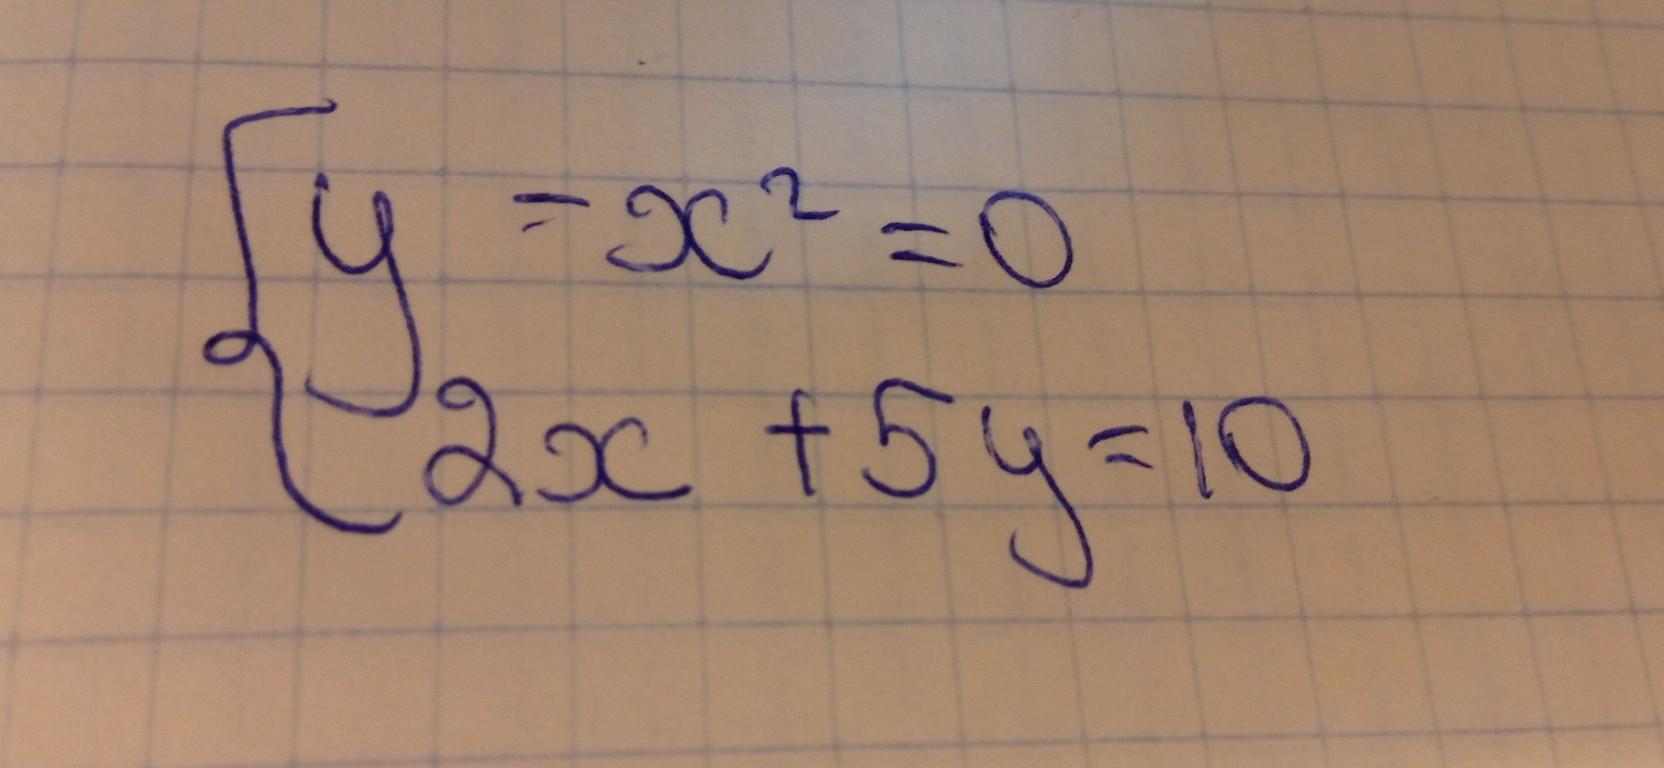 y - x² = 0
2x + 5y = 10